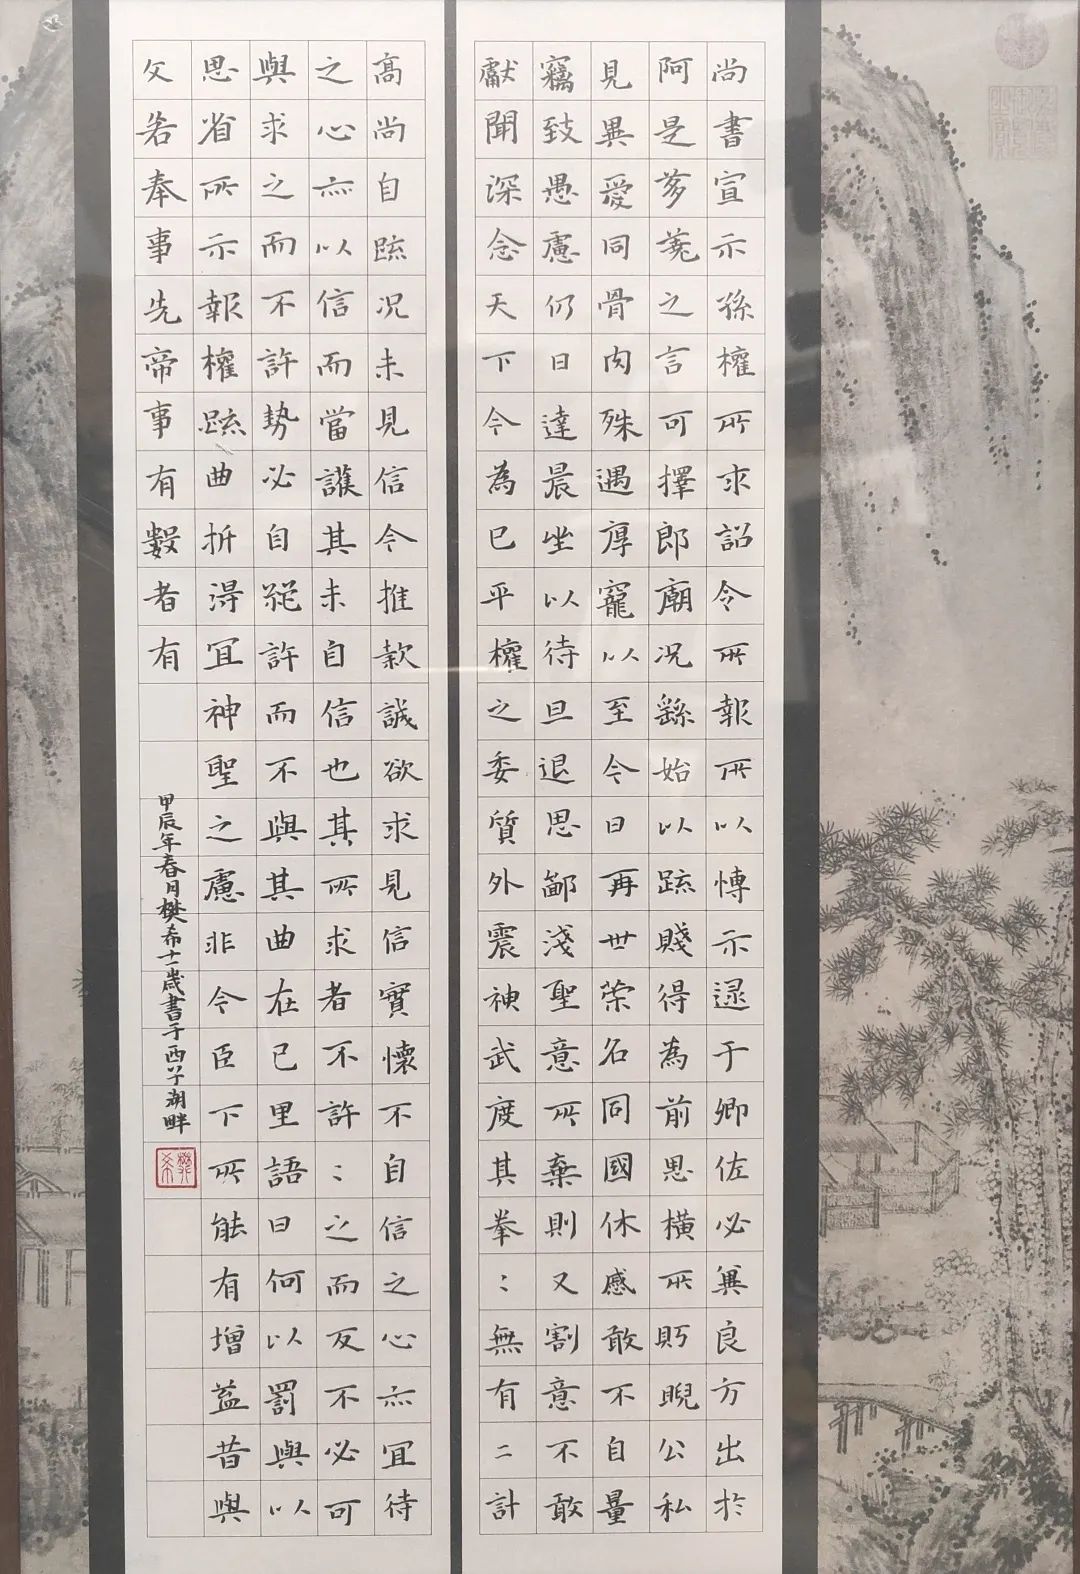 尚書宣示孫權所求詔令所報所以博示逮于卿佐必冀良方出於
阿是芻蕘之言可擇郎廟況繇始以疏賤得為前思橫所眄睨公私
見異愛同骨肉殊遇厚寵以至今日再世榮名同國休慼敢不自量
竊致愚慮仍日達晨坐以待旦退思鄙淺聖意所棄則又割意不敢
獻聞深念天下今為已平權之委質外震神武度其拳：無有二計
高尚自疏況未見信今推款誠欲求見信實懷不自信之心亦宜待
之心亦以信而當護其未自信也其所求者不許：之而反不必可
與求之而不許勢必自絕許而不與其曲在己里語曰何以罰與以
思省所示報權疏曲折得宜神聖之慮非今臣下所能有增益昔與
文若奉事先帝事有數者有
甲辰年春月樊希十一歲書于西子湖畔
樊希